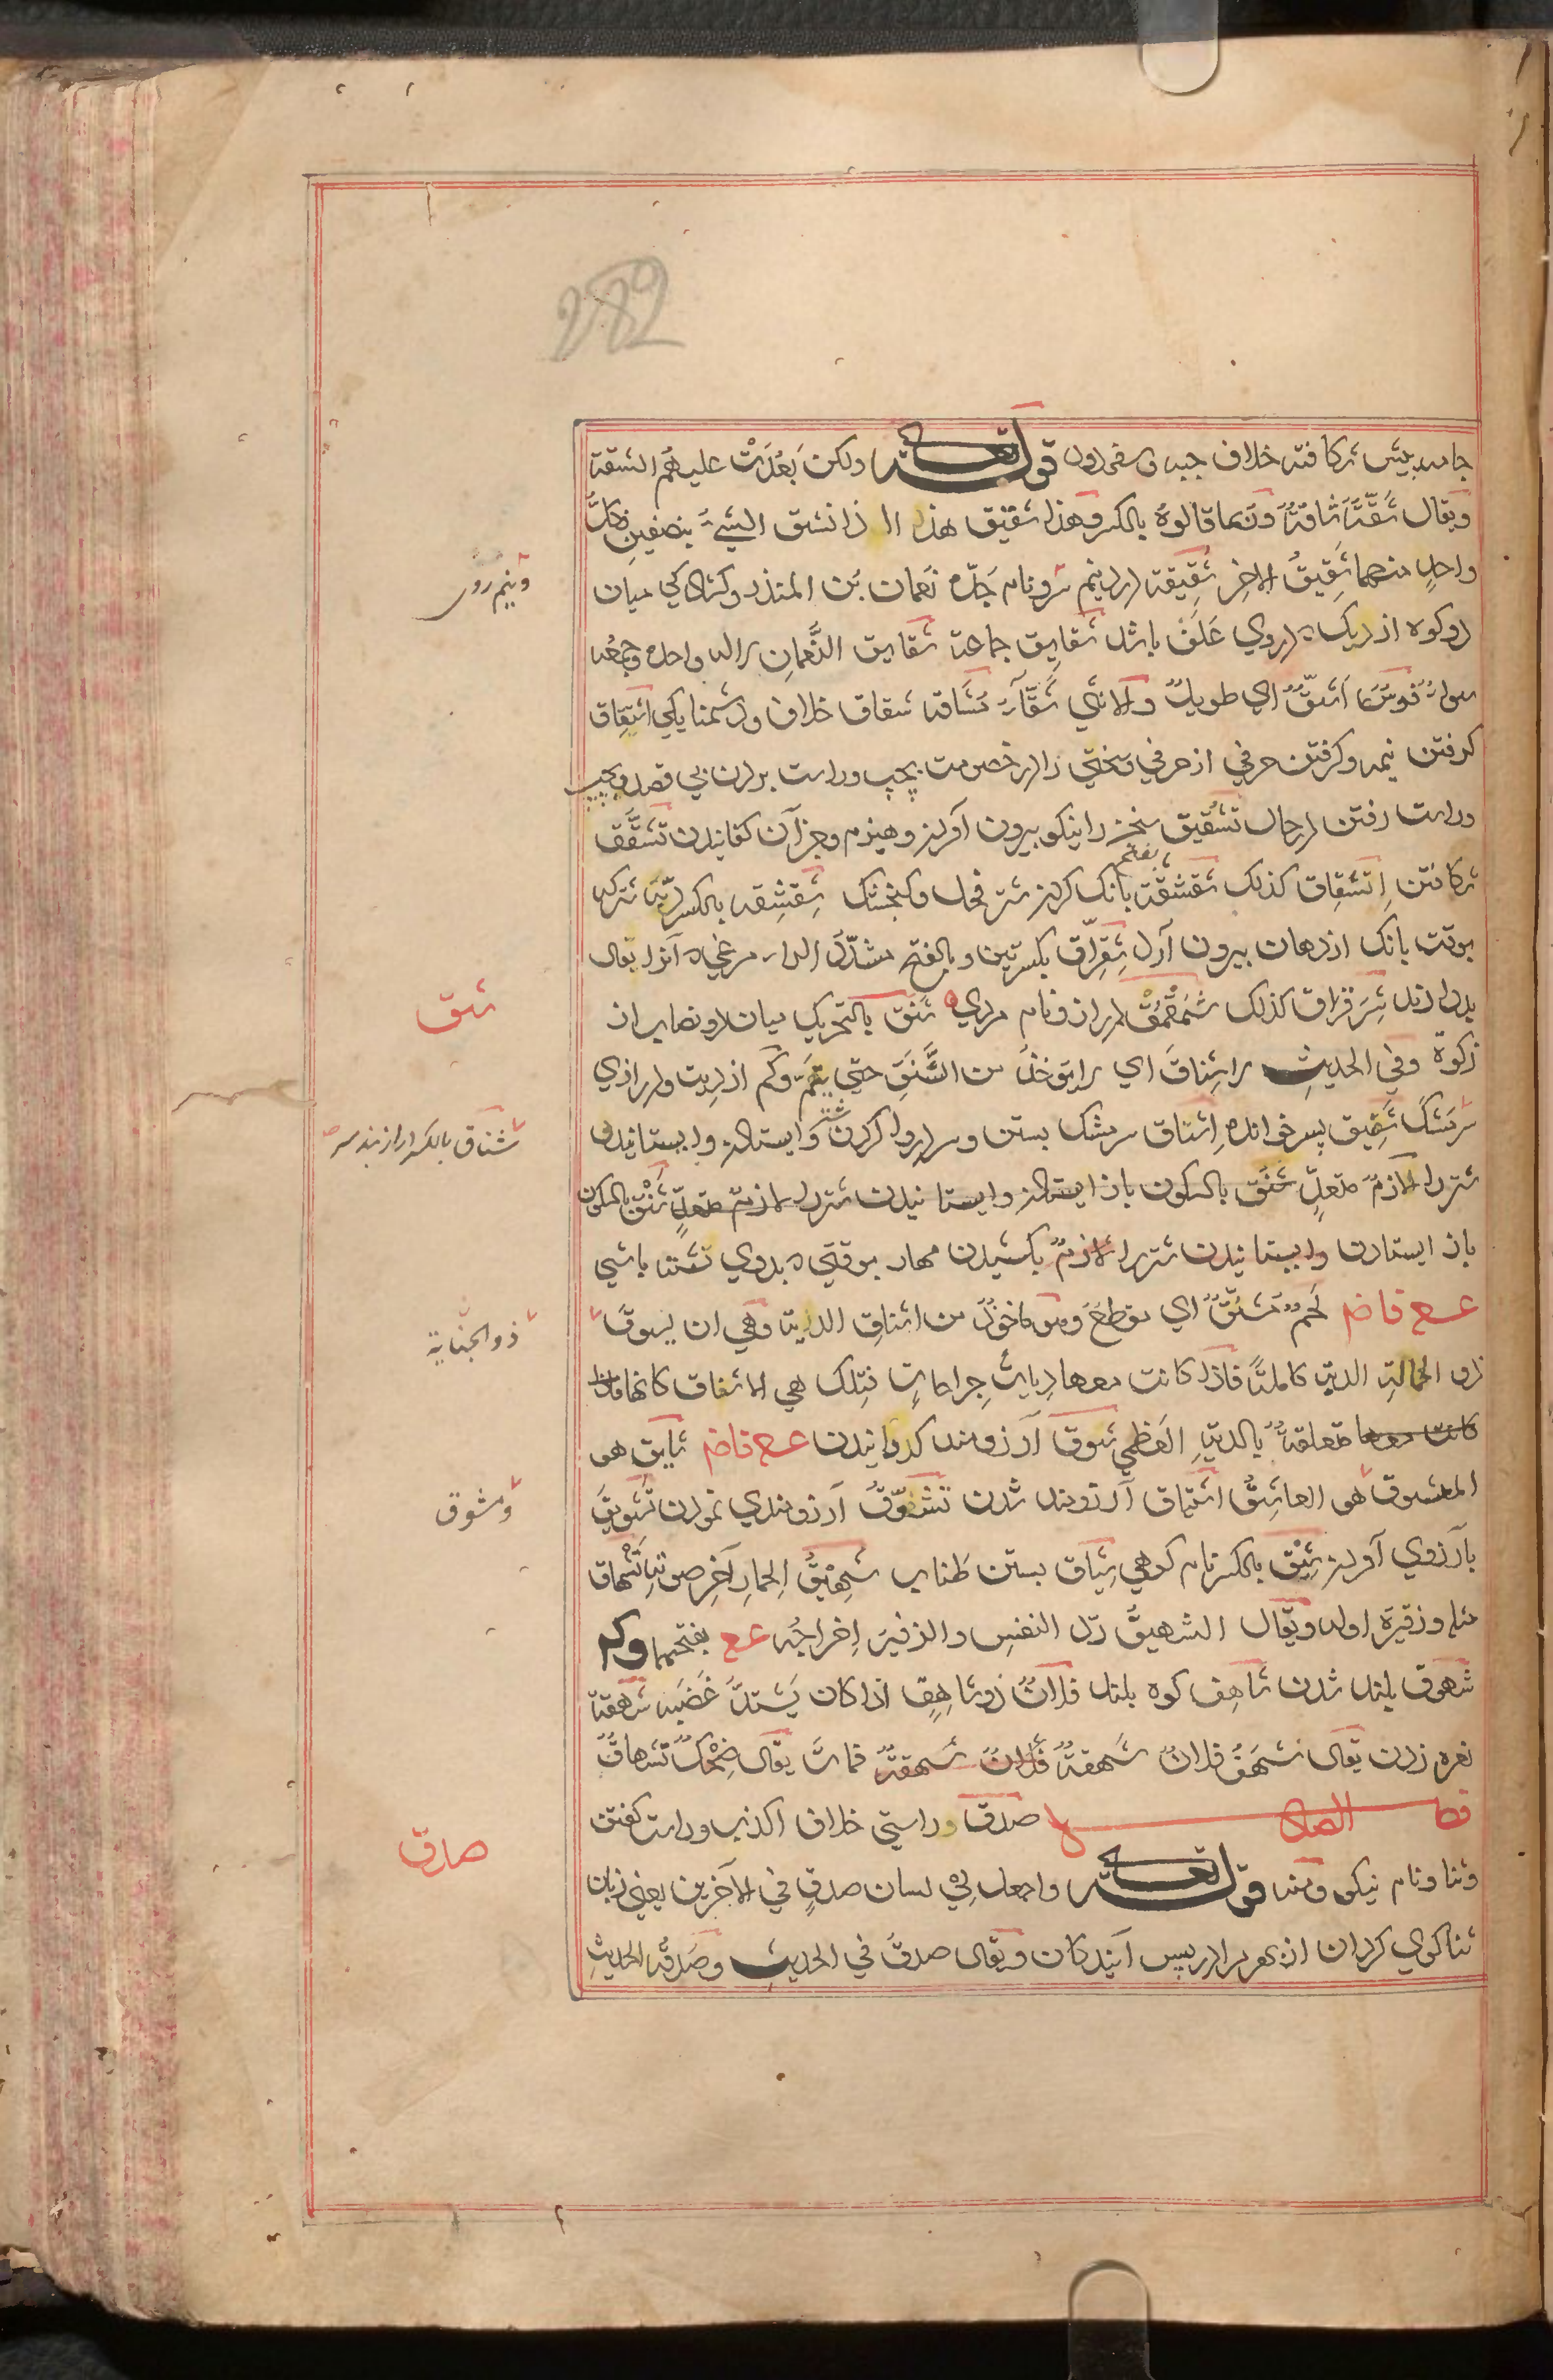 282
جامه پیش شکافته خلاف جبه و سفر دور قوله تعالی ولکن بَعُدَتْ علیهُم الشقة
ویقال شُقَّةٌ شاقَّةٌ ورُبَما قالوهُ بالکسر وهذا شَقیق هذا اذا انشق الشئُ بنصفینِ فکلُّ
واحدٍ منهما شَقِیقُ الاخرِ شَقِیقَة درد نیم سر ونام جَدّه نعمان بَن المنذر وکشادکی میان
دو کوه از ریک که در وی عَلَف باشد شقایِق جماعة شقایق النُّعمان لاله واحده وجمعه
سواءٌ فَرَسٌ اَشَقُّ ای طویلٌ والانثی شَقّاءُ مُشَاقّة شِقاق خلاف ودشمنایکی اشتِقاق
کرفتن نیمه وکرفتن حرفی از حرفی وسختی در خصومت بچپ وراست بردن بی قصد وبچپ
وراست رفتن در حال تَشقیق سخن را نیکو بیرون آوردن وهیزم وجز آن کفانیدن تَشَقُّق
شکافتن اِنشِقاق کذلک شَقشَقَة بفتح بانک کردن شتر فحل وکنجشک شِقشِقه بالکسر آنچه شتر که
بوقت بانک از دهان بیرون آرد شِقِرّاق بکسرتین وبالفتح مشدّدَ الراء مرغی که آنرا بفال
بد دارند شِرَقراق کذلک شَمَقمَق دراز ونام مردی شَنَق بالتحریک میان دو نصاب از
زکوة وفی الحدیث لا شِناقَ ای لا یوخذُ من الشَّنَقِ حتی یَتِمَّ وکم از دیت ودرازی
سر مَشک شَنِیق پسر خوانده اِشناق سر مشک بستن وسر دروا کردن شتر وایستادن وابستانیدن
شتر را لازمٌ متعدٍّ شَنَق بالسکون باز ایستادن وایستانیدن شتر را لازمٌ متعدٍّ شَنْق بالسکون
باز ایستادن وایستانیدن شتر را لازمٌ بکشیدن مهار بوقتی که بر وی نشسته باشی
عـع فاضـ لَحمٌ مُشَنَّقٌ ای مقطعٌ وهو ماخوذٌ من اشناقِ الدیةِ وهی ان یسوقَ
ذو الحمالةِ الدیةَ کاملةً فاذا کانت معها دیاتُ جِراحاتٍ فتِلک هی الاشناق کانها
کانت معها متعلقةٌ بالدیةِ العظمی شوق آرزومند کردانیدن عـع فاضـ شایق هو
المعشوق هو العاشِقُ اشتیاق آرزومند شدن تَشَوُّق آرزومندی نمودن تَشوِیق
بآرزوی آوردن شِیْق بالکسر نام کوهی شِیاق بستن طناب شَهِیقُ الحمارِ آخِر صوتِه تَشهاق
مثله وزفیرَه اوله ویقال الشهیقُ ردّ النفسِ والزفیرَ اِخراجُه عـع بفتحهما وکم
شهوق بلند شدن شاهِق کوه بلند فلانٌ ذو شاهِقٍ اذا کان یَشتدُّ غَضَبه شهقة
نعره زدن یقال شَهَقَ فلانٌ شَهقةً فلانٌ شَهقةً فماتَ یقال ضِحْکٌ تَشهاقٌ
فصل الصاد صدق وراستی خلاف الکذب وراست کفتن
وثنا ونام نیکو ومنه قوله تعالی واجعل لِی لسان صدقٍ فی الآخرین یعنی زبان
ثنا کوی کردان از بهر مرا در پس آیندکان ویقال صدقَ فی الحدیث وصَدَقَه الحدیثَ
ونیم روی
شنق
شناق بالکسر دراز بند سر
ذو الجنایة
ومشوق
صدق